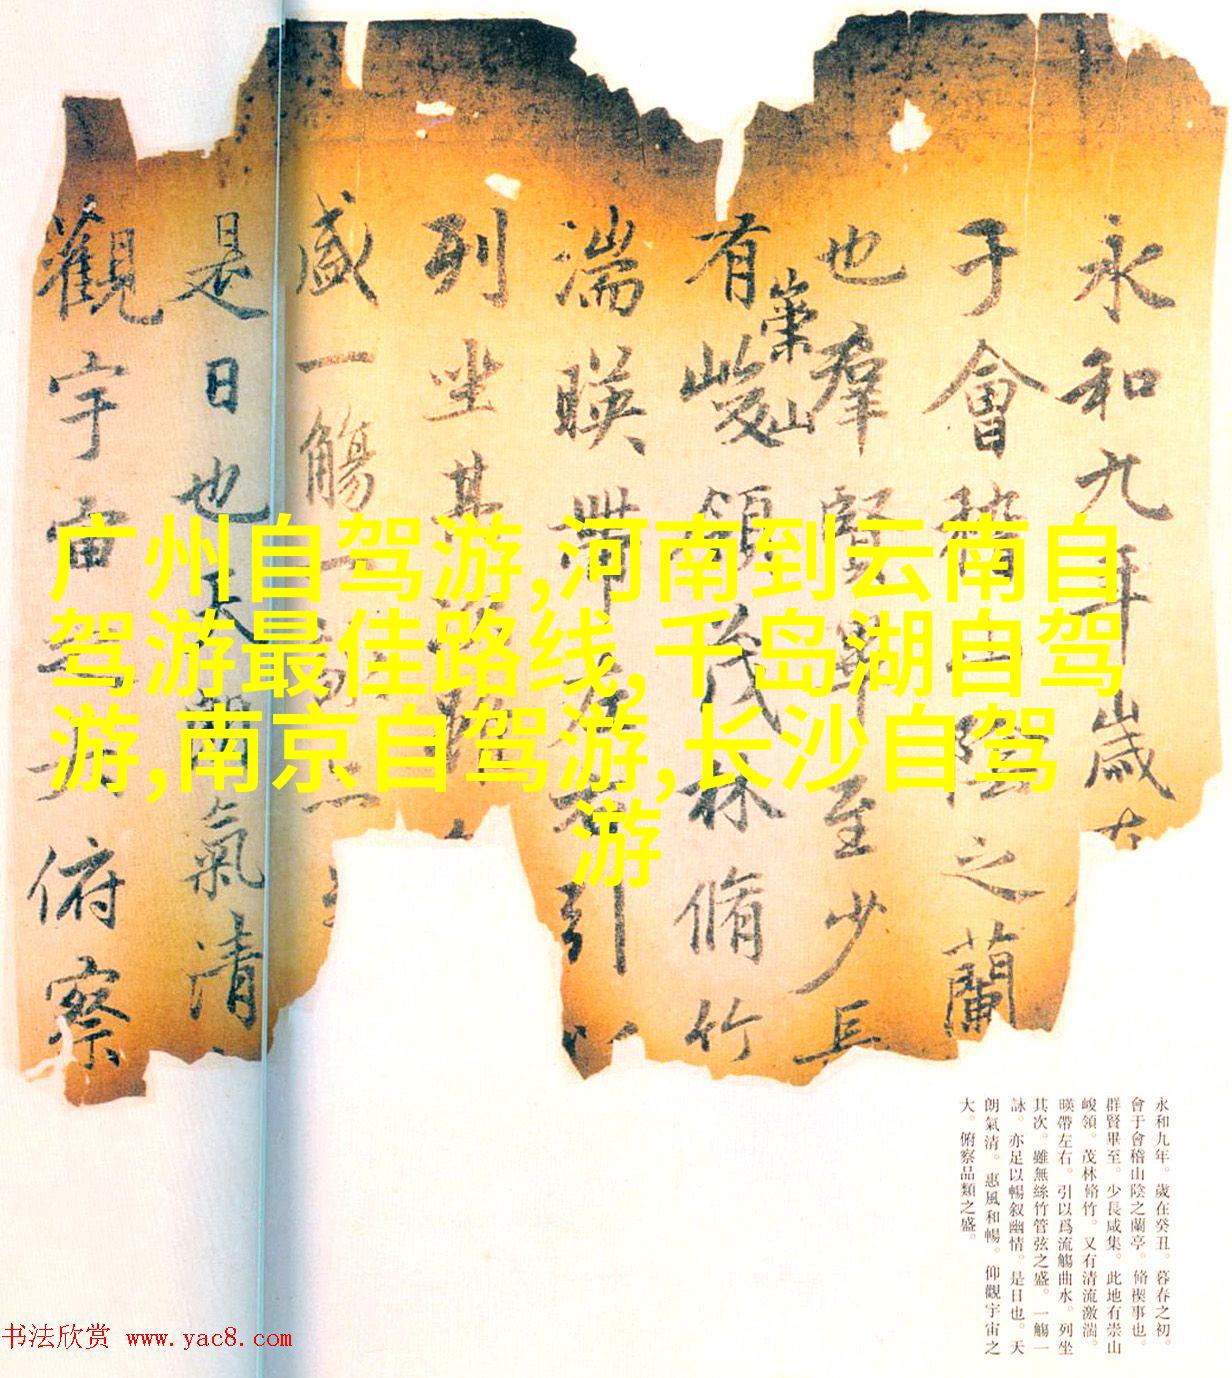 永和九年歲在
于會稽山陰之蘭
也羣賢畢至少長
有崇山峻領茂林脩竹
湍暎帶左右引以
列坐其次
盛一觴一詠亦
是日也天朗氣清
觀宇宙之大俯察
广州自驾游,河南到云南自
驾游最佳路线,千岛湖自驾
游,南京自驾游,长沙自驾
游
永和九年。歲在癸丑。暮春之初。
會于會稽山陰之蘭亭。脩禊事也。
群賢畢至。少長咸集。此地有崇山
峻領。茂林脩竹。又有清流激湍。
暎帶左右。引以爲流觴曲水。列坐
其次。雖無絲竹管弦之盛。一觴一
詠。亦足以暢叙幽情。是日也。天
朗氣清。惠風和暢。仰觀宇宙之
大。俯察品類之盛。
书法欣赏 www.yac8.com